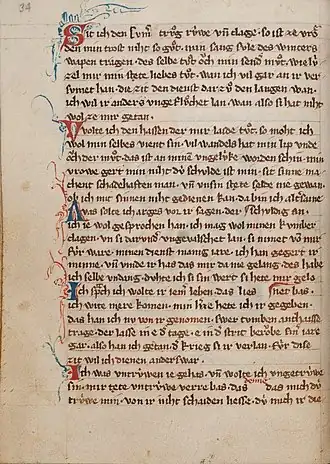 34
Sit ich den sum̄ trv̊g rv́we vn̄ clage. so ist ze vrȯ
den min trost niht so gv̊t. min sang svle des winters
wapen tragen. des selbe tv̊t ȯch min send mv̊t. wie ly
zel mir min stete liebes tv̊t. wan ich vil gar an ir ver
sumet han. die zit den dienst dar zv̊ den langen wan.
ich wil ir anders vngeflv̊chet lan. wan also si hat niht
wol ze mir getan.
Wolte ich den hassen der mir laide tv̊t. so moht ich
wol min selbes vient sin. vil wandels hat min lip vnde
ȯch der mv̊t. das ist an minem vngelv́ke worden schin. min
vrowe gert min niht dv́ schulde ist min. sit sinne ma
chent sældehaften man. vn̄ vnsin stete selde nie gewan.
ob ich mit sinnen niht gedienen kan. da bin ich alt saine
Was solte ich arges vō ir sagen. der ich ding an
ich ie wol gesprochen han. ich mag wol minen kumber
clagen. vn̄ si dar vnd̄ vngevelschet lan. si nimet vō mir
fv́r ware. minen dienst manig iare. ich han gegert ir
minne. vn̄ vinde ir has das mir da nie gelang. des habe
ich selbe vndang. dvhte ich si sin wert si hete mir gelo
Ich sprach ich wolte ir iem̄ leben. das lies net bas.
ich wite mere komen. min h'ze hete ich ir gegeben.
das han ich nv von ir genomen. swer tumben anthaisse
trage. der lasse in e d' tage. e in d' strit berȯbe sin̄ iare
gar. also han ich getan. d' krieg si ir verlan. fv́r dise
zit wil ich dienen anderswar.
Ich was vntrv́wen ie gehas. vn̄ wolte ich vngetrv́we
sin. mir tete vntrv́we verre bas. das danne das mich dv́
trv́we min. von ir niht schaiden liesse. dv́ mich ir die